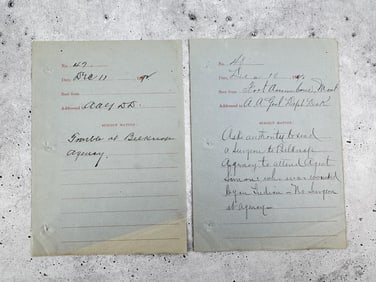 No. 47
Date, Dec 11
Sent from
Addressed to AAG DD.
SUBJECT MATTER
Trouble at Belknap
Agency.
No. 48
Date, Dec 10
Sent from Fort Assinniboine, Mont
Addressed to A A Genl Dept Dak
SUBJECT MATTER
Asks authority to send
a Surgeon to Belknap
Agency to attend Agent
Simons who was wounded
by an Indian - No Surgeon
at agency -